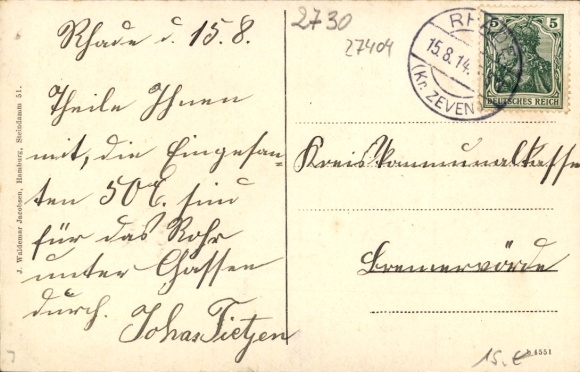 Rhade d. 15.8.
Theile Ihnen
mit, die Eingesan-
ten 50 M. sind
für das Rohr
unter Chassen
durch.
Johas Tietjen
2730
27404
RHADE
15.8.14.
(Kr. ZEVEN
5 5
DEUTSCHES REICH
Kreiskommunalkasse
Bremervörde
J. Waldemar Jacobsen, Hamburg, Steindamm 51.
b 4551
15.€